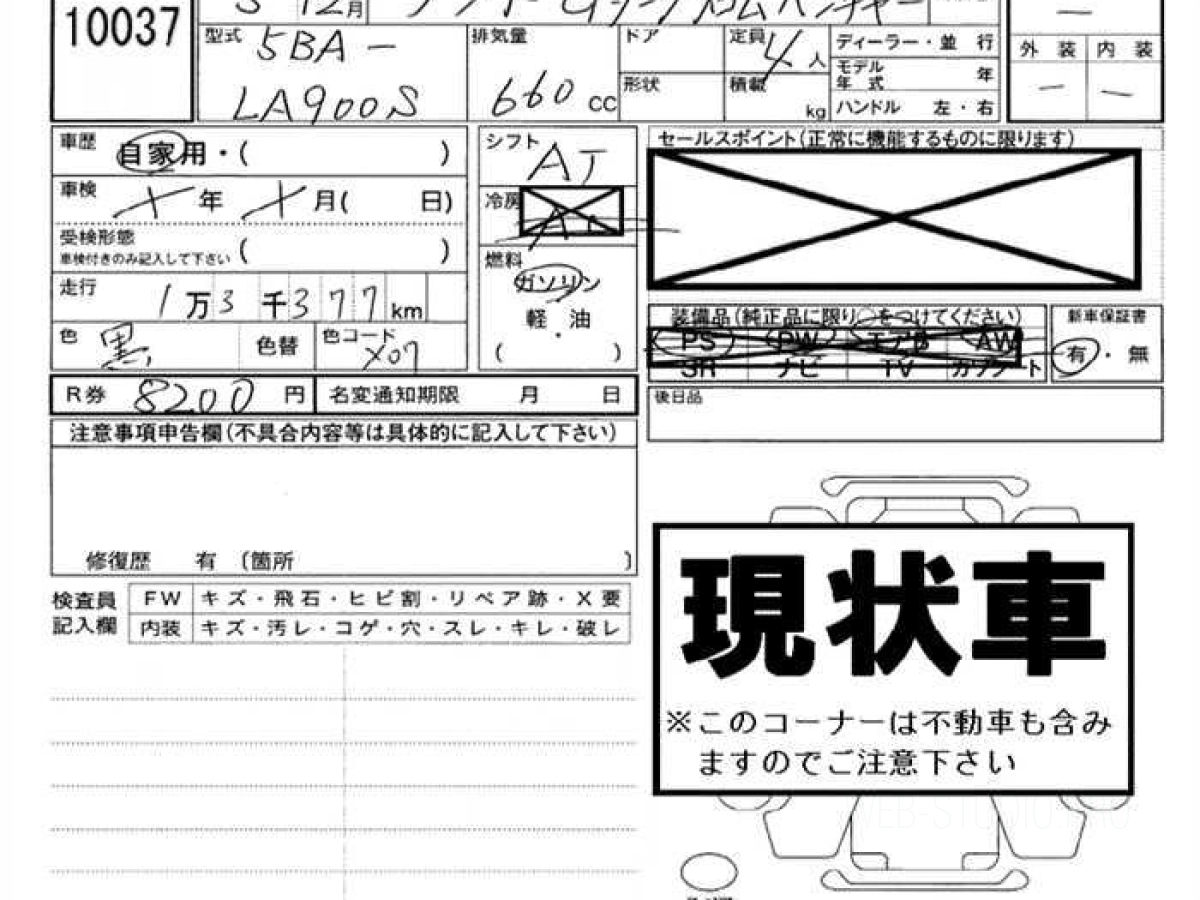 10037
5 12月
型式 5BA-
LA900S
排気量
660 CC
ドア
形状
定員 4人
積載 kg
ディーラー・並 行
モデル
年 式 年
ハンドル 左・右
外 装 内 装
— —
車歴 自家用・( )
車検 年 月( 日)
受検形態
車検付きのみ記入して下さい ( )
走行 1万3千377km
色 黒 色替 色コード X07
シフト AT
冷房 AC
燃料
ガソリン
軽・油
( )
セールスポイント(正常に機能するものに限ります)
装備品(純正品に限り○をつけてください)
PS PW エアB AW
SR ナビ TV カワシート
新車保証書
有・無
R券 8200 円 名変通知期限 月 日
後日品
注意事項申告欄(不具合内容等は具体的に記入して下さい)
修復歴 有 〔箇所 〕
検査員
記入欄
FW キズ・飛石・ヒビ割・リペア跡・X要
内装 キズ・汚レ・コゲ・穴・スレ・キレ・破レ
現状車
※このコーナーは不動車も含み
ますのでご注意下さい